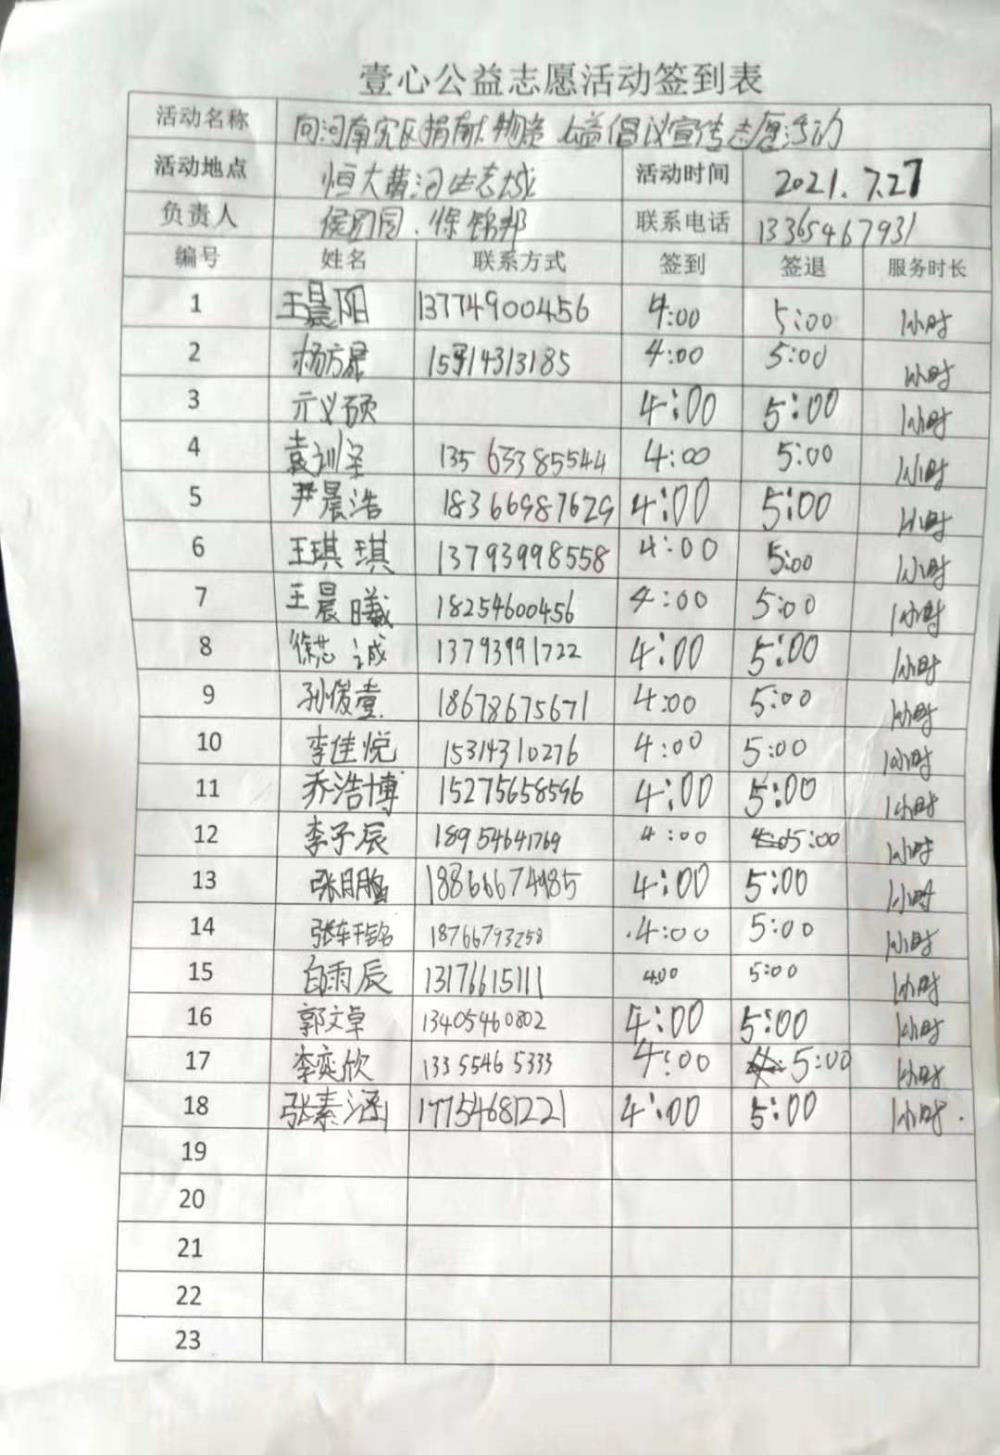 壹心公益志愿活动签到表
活动名称 向河南灾区捐献物资 公益倡议宣传志愿活动
活动地点 恒大黄河生态城 活动时间 2021.7.27
负责人 侯团园、徐锦邦 联系电话 13365467931
编号 姓名 联系方式 签到 签退 服务时长
1 王晨阳 13774900456 4:00 5:00 1小时
2 杨方晟 4:00 5:00 1小时
3 亓义硕 4:00 5:00 1小时
4 袁训圣 13563385544 4:00 5:00 1小时
5 尹晨浩 18366987629 4:00 5:00 1小时
6 王琪琪 13793998558 4:00 5:00 1小时
7 王晨曦 18254600456 4:00 5:00 1小时
8 徐芯诚 13793991722 4:00 5:00 1小时
9 孙俊壹 18678675671 4:00 5:00 1小时
10 李佳悦 15314310276 4:00 5:00 1小时
11 乔浩博 15275658596 4:00 5:00 1小时
12 李子辰 18954641769 4:00 5:00 1小时
13 张 18866674985 4:00 5:00 1小时
14 张 18766793258 4:00 5:00 1小时
15 白雨辰 13176615111 4:00 5:00 1小时
16 郭文卓 13405460802 4:00 5:00 1小时
17 李奕欣 13355465333 4:00 5:00 1小时
18 张素涵 17754681221 4:00 5:00 1小时.
19
20
21
22
23